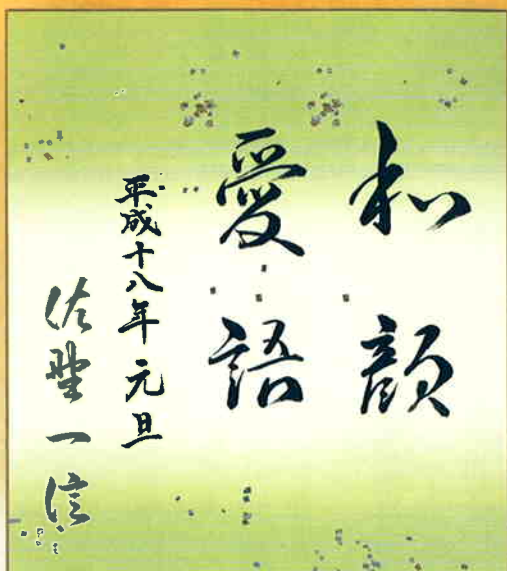 和顔
愛語
平成十八年元旦
佐野一信